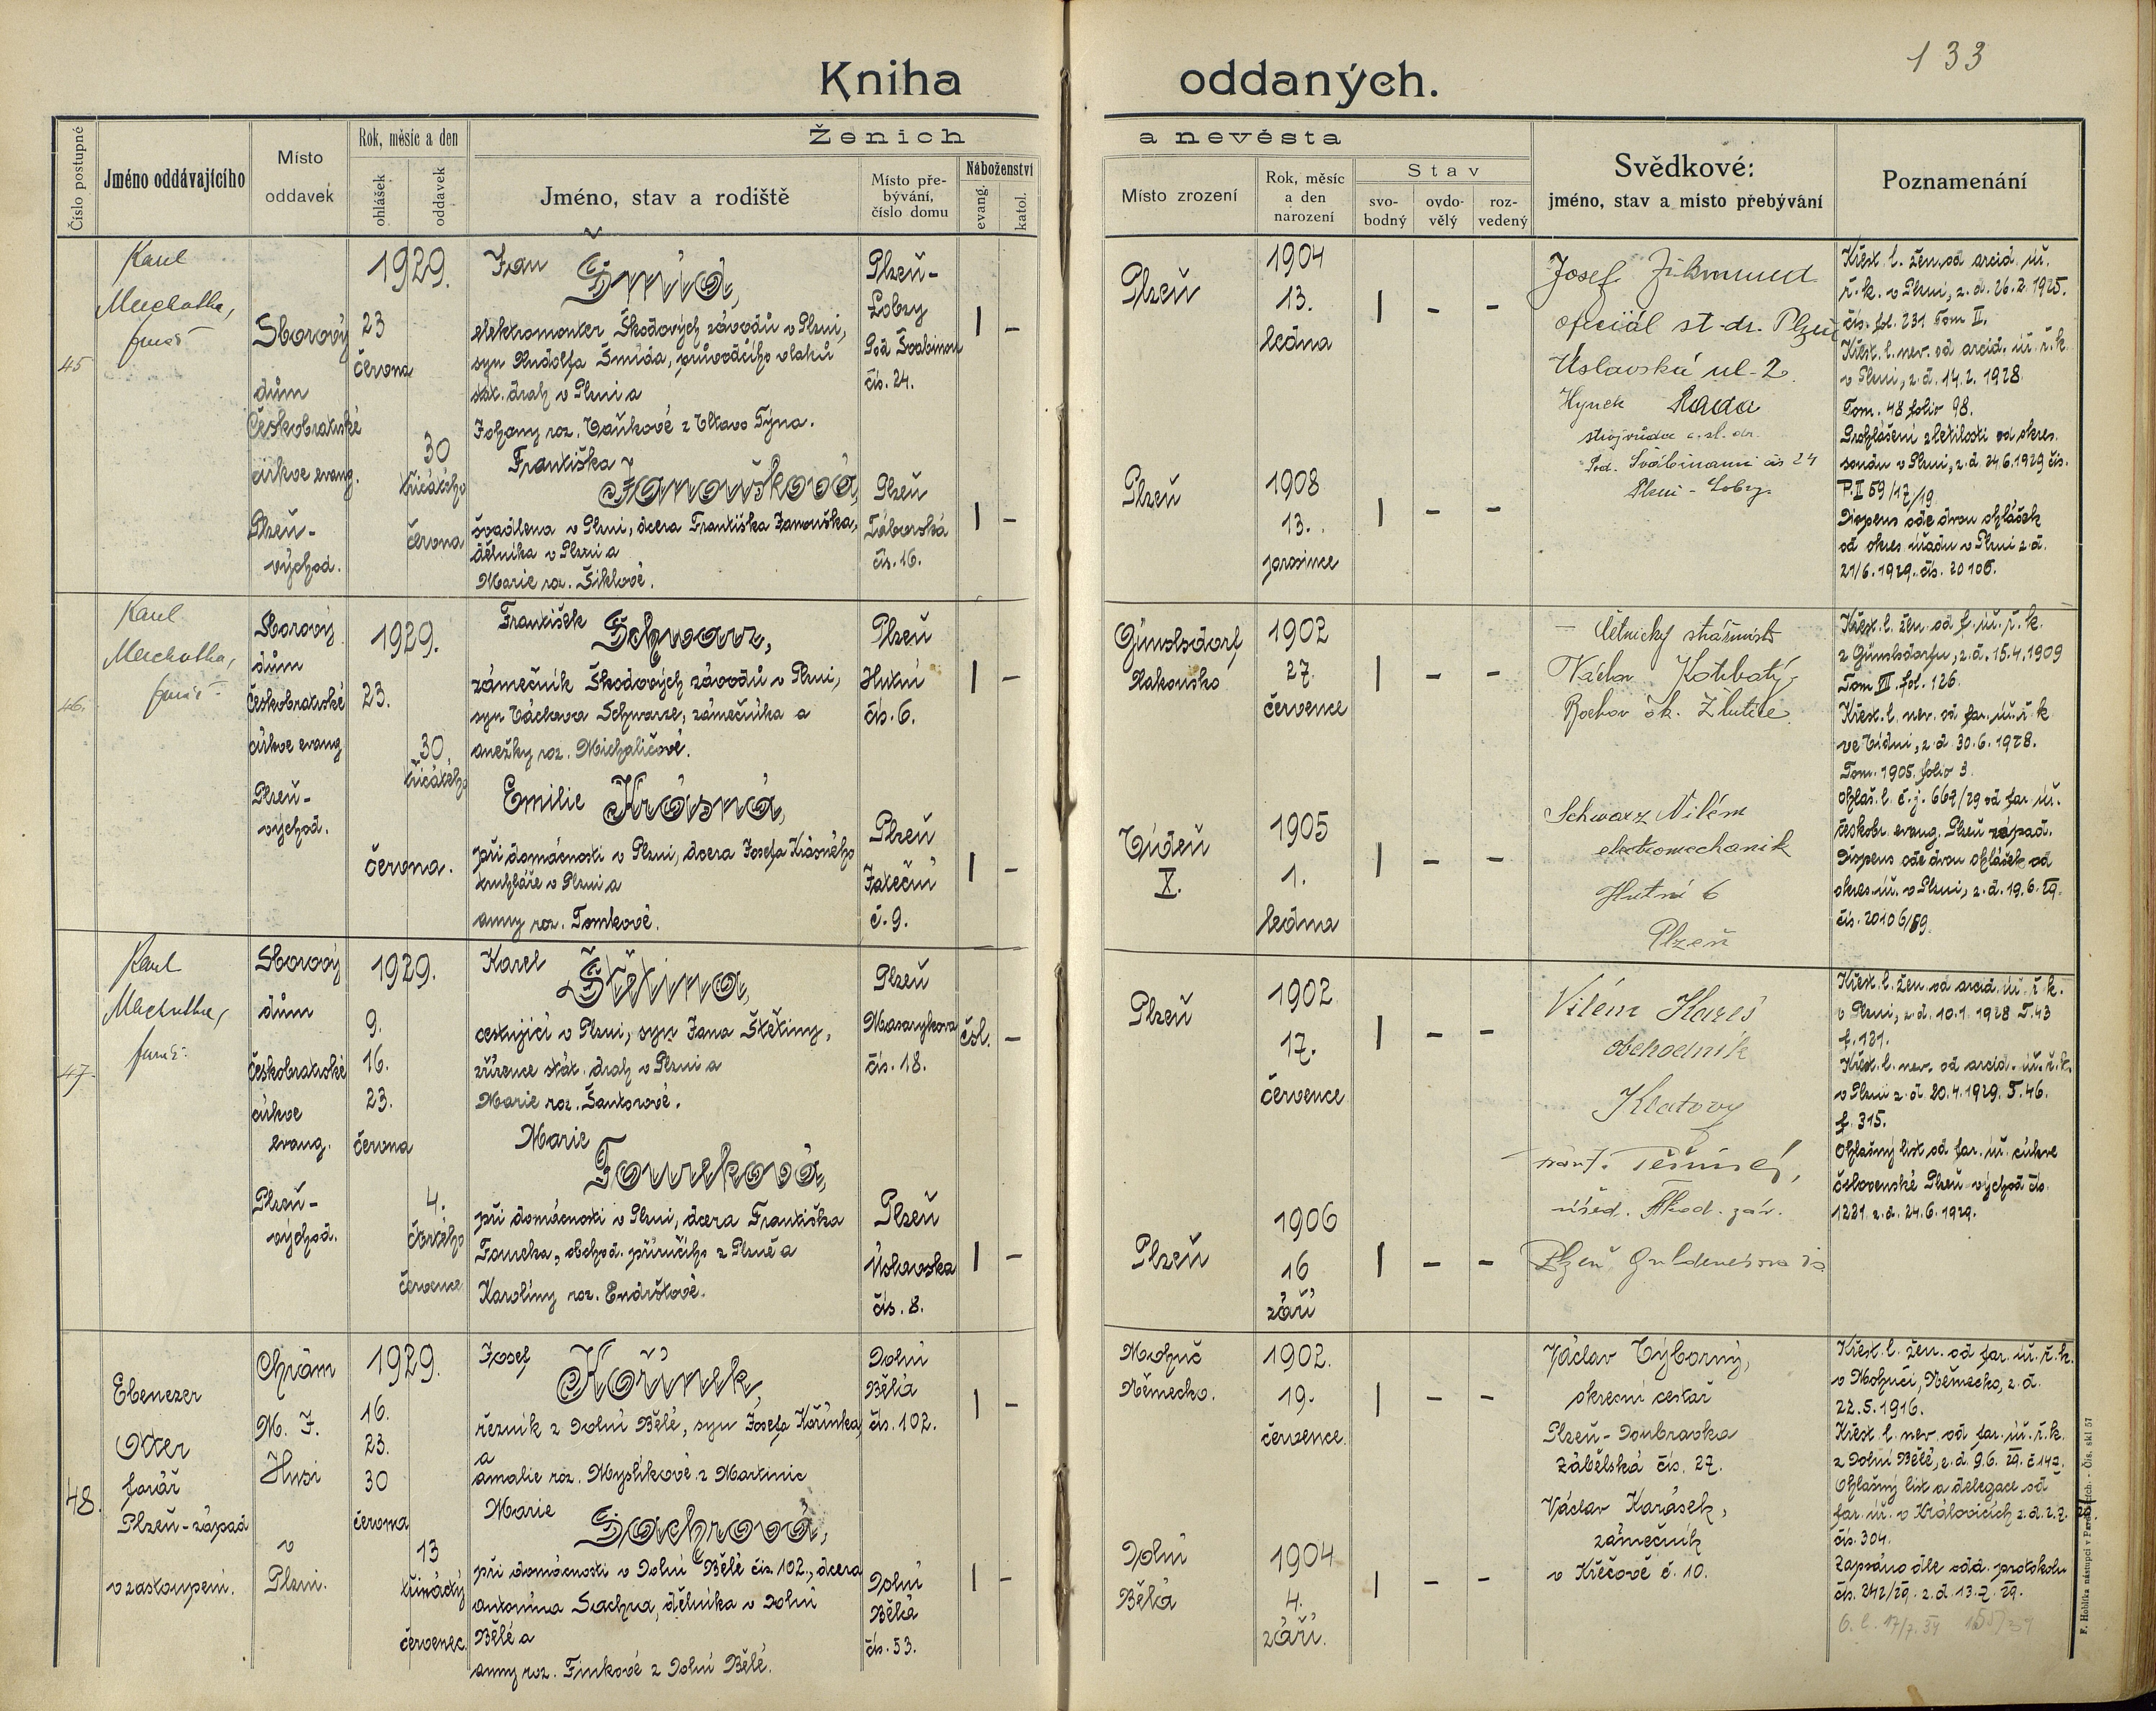 133
Kniha oddaných.
Číslo postupné
Jméno oddávajícího
Místo oddavek
Rok, měsíc a den
ohlášek
oddavek
Ženich a nevěsta
Jméno, stav a rodiště
Místo pře-
bývání,
číslo domu
Náboženství
evang.
katol.
Místo zrození
Rok, měsíc
a den
narození
Stav
svo-
bodný
ovdo-
vělý
roz-
vedený
Svědkové:
jméno, stav a místo přebývání
Poznamenání
45
Karel
Machotka,
farář
Sborový
dům
Českobratrské
církve evang.
Plzeň-
východ.
1929.
23
června
30
třicátého
června
Jan Šmíd,
elektromonter Škodových závodů v Plzni,
syn Rudolfa Šmída, průvodčího vlaků
stát. drah v Plzni a
Johany roz. Vaňkové z Vltavo Týna.
Plzeň-
Lobzy
Pod Švabinou
čís. 24.
| –
Plzeň
1904
13.
ledna
| – –
Františka
Janoušková,
švadlena v Plzni, dcera Františka Janouška,
dělníka v Plzni a
Marie roz. Šiklové.
Plzeň
Táborská
čís. 16.
| –
Plzeň
1908
13.
prosince
| – –
Josef Zikmund
oficiál st. dr. Plzeň
Úslavská ul. 2.
Hynek Rada
strojvůdce č. st. dr.
Pod. Švábinami čís 24
Plzni - Lobzy
Křest. l. žen. od arcid. úř.
ř. k. v Plzni, z. d. 26.2.1925.
čís. fol. 231 Tom II.
Křest. l. nev. od arcid. úř. ř. k.
v Plzni, z. d. 14.2.1928.
Tom. 48 folio 98.
Prohlášení zletilosti od okres.
soudu v Plzni, z. d. 24.6.1929 čís.
P. II 59/17/19
Dispens ode dvou ohlášek
od okres. úřadu v Plzni z. d.
21/6. 1929. čís. 20106.
46.
Karel
Machotka,
farář
Sborový
dům
Českobratrské
církve evang
Plzeň-
východ.
1929.
23.
30.
třicátého
června.
František Schwarz,
zámečník Škodových závodů v Plzni,
syn Václava Schwarze, zámečníka a
Anežky roz. Michaličové.
Plzeň
Hutní
čís. 6.
| –
Günselsdorf
Rakousko
1902
27.
července
| – –
Emilie Krásná,
při domácnosti v Plzni, dcera Josefa Krásného
truhláře v Plzni a
Anny roz. Tomkové.
Plzeň
Jateční
č. 9.
| –
Vídeň
X.
1905
1.
ledna
| – –
četnický strážmistr
Václav Kotrbatý
Bochov ok. Žlutice.
Schwarz Vilém
elektromechanik
Hutní 6
Plzeň
Křest. l. žen. od f. úř. ř. k.
z Günselsdorfu, z. d. 15.4.1909
Tom VII. fol. 126.
Křest. l. nev. od far. úř. ř. k
ve Vídni, z. d 30.6.1928.
Tom. 1905. folio 3.
Ohlaš. l. č. j. 669/29 od far. úř.
českobr. evang. Plzeň západ.
Dispens ode dvou ohlášek od
okres. úř. v Plzni, z. d. 19.6.29.
čís. 20106/89.
47.
Karel
Machotka,
farář
Sborový
dům
Českobratrské
církve
evang.
Plzeň-
východ.
1929.
9.
16.
23.
června
4.
čtvrtého
července
Karel Štětina,
cestující v Plzni, syn Jana Štětiny,
zřízence stát. drah v Plzni a
Marie roz. Šantorové.
Plzeň
Masarykova
čís. 18.
čsl. –
Plzeň
1902.
17.
července
| – –
Marie
Tourková,
při domácnosti v Plzni, dcera Františka
Tourka, obchod. příručího z Plzně a
Karolíny roz. Endrštové.
Plzeň
Úslavská
čís. 8.
| –
Plzeň
1906
16
září
| – –
Vilém Hareš
obchodník
Klatovy
úřed. Škod. záv.
Plzeň
Křest. l. žen. od arcid. úř. ř. k.
v Plzni, z. d. 10.1.1928 T. 43
f. 121.
Křest. l. nev. od arcid. úř. ř. k.
v Plzni z. d. 20.4.1929. T. 46.
f. 315.
Ohlašný list od far. úř. církve
čsslovenské Plzeň-východ čís.
1221. z. d. 24.6.1929.
48.
Ebenezer
Otter
farář
Plzeň-západ
v zastoupení.
Chrám
M. J.
Husi
v
Plzni.
1929.
16.
23.
30
června
13
třináctý
červenec.
Josef Kořínek,
řezník z Dolní Bělé, syn Josefa Kořínka,
a
Amalie roz. Myslíkové z Martinic
Dolní
Bělá
čís. 102.
| –
Mohuč
Německo.
1902.
19.
července.
| – –
Marie
Sachrová,
při domácnosti v Dolní Bělé čís. 102., dcera
Antonína Sachra, dělníka v Dolní
Bělé a
Anny roz. Finkové z Dolní Bělé.
Dolní
Bělá
čís. 53.
| –
Dolní
Bělá
1904
4.
září.
| – –
Václav Výborný,
okresní cestář
Plzeň-Doubravka
Zábělská čís. 27.
Václav Karásek,
zámečník
v Křečově č. 10.
Křest. l. žen. od far. úř. ř. k.
v Mohuči, Německo, z. d.
22.5.1916.
Křest. l. nev. od far. úř. ř. k.
z Dolní Bělé, z. d. 9.6.29. č 142.
Ohlašný list a delegace od
far. úř. v Kralovicích z. d. 2.7.
čís. 304.
Zapsáno dle odd. protokolu
čís. 242/29. z. d. 13.7.29.
17/7. 34
F. Hoblíka nástupci v Pardubicích. - Čís. skl 57